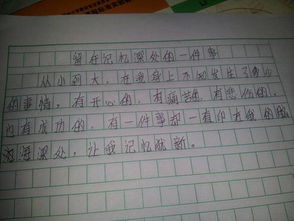 留在记忆深处的一件事
从小到大,在我身上不知发生了多少
的事情。有开心的,有痛苦的,有悲伤的,
也有成功的,有一件事却一直印在我的脑
海深处,让我记忆犹新。